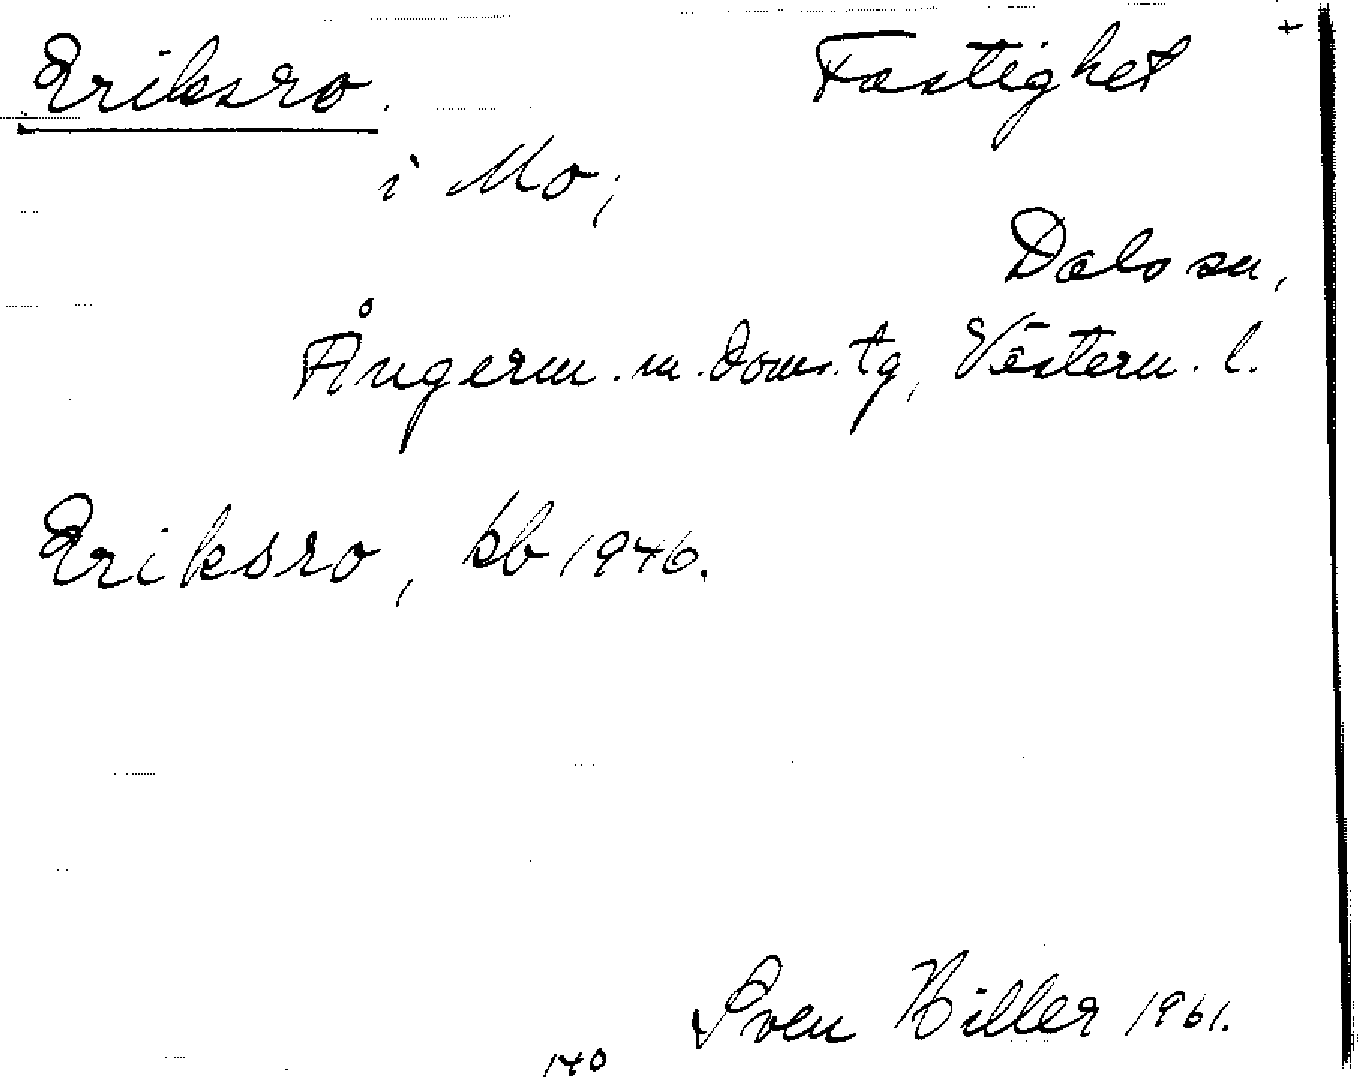 Eriksro. Fastighet +
i Mo,
Dals sn,
Ångerm. m. doms. tg, Västern. l.
Eriksro, kb 1946.
Sven Hiller 1961.
140